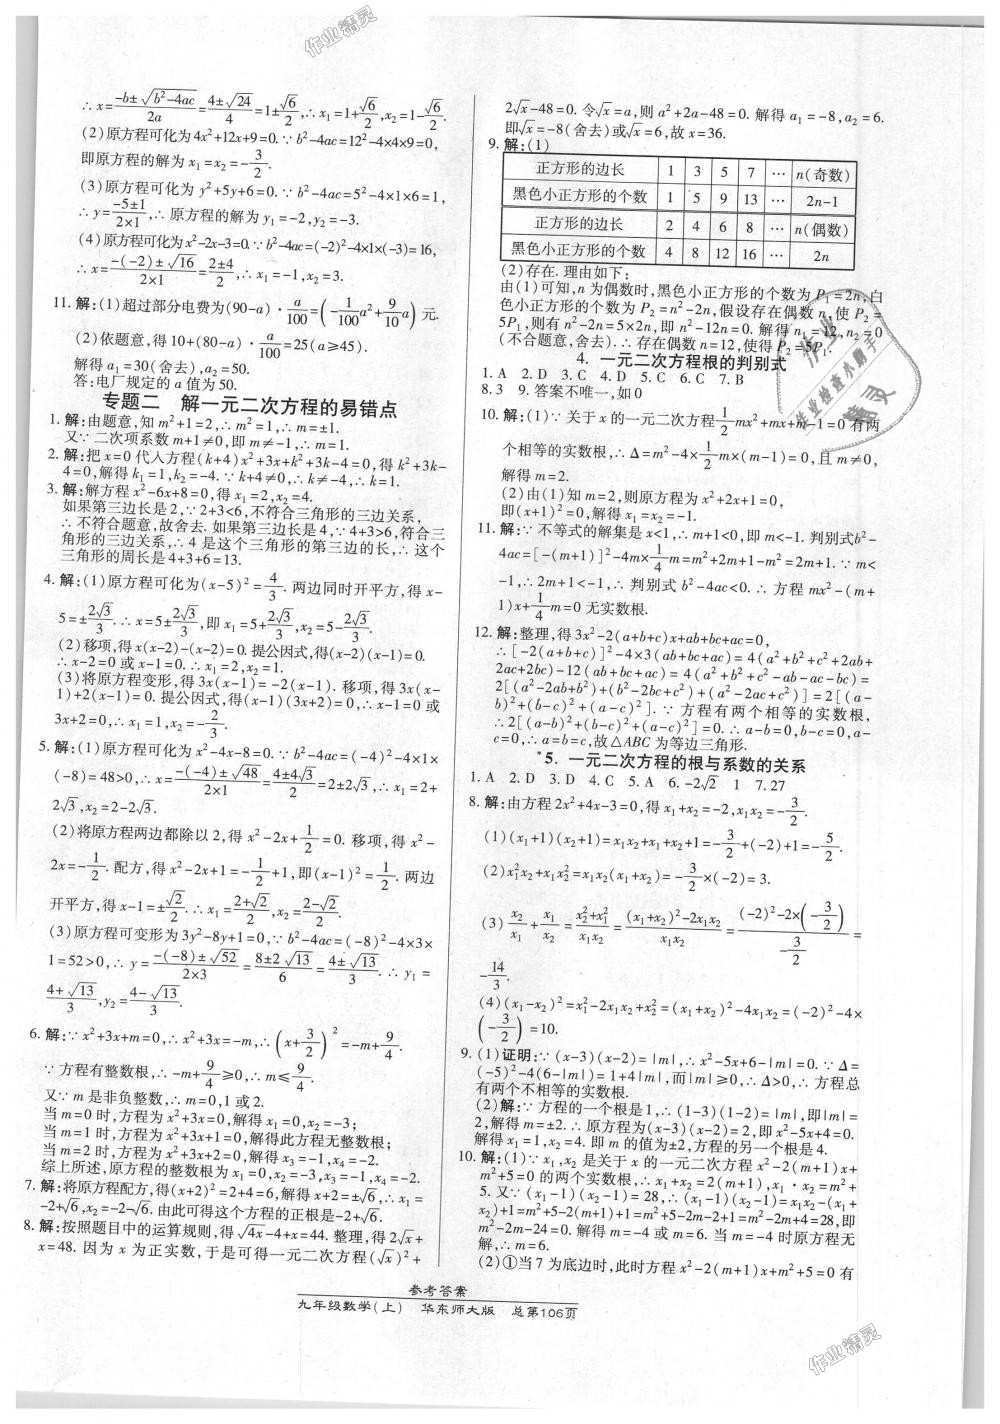 ∴ x=(-b±√(b²-4ac))/2a=(4±√24)/4=1±√6/2,∴ x₁=1+√6/2,x₂=1-√6/2.
(2)原方程可化为4x²+12x+9=0.∵ b²-4ac=12²-4×4×9=0,
即原方程的解为 x₁=x₂=-3/2.
(3)原方程可化为 y²+5y+6=0.∵ b²-4ac=5²-4×1×6=1,
∴ y=(-5±1)/(2×1),∴ 原方程的解为 y₁=-2,y₂=-3.
(4)原方程可化为x²-2x-3=0.∵ b²-4ac=(-2)²-4×1×(-3)=16,
∴ x=(-(-2)±√16)/(2×1)=(2±4)/2,∴ x₁=-1,x₂=3.
11. 解:(1)超过部分电费为(90-a)·a/100=(-1/100a²+9/10a)元.
(2)依题意,得10+(80-a)·a/100=25(a≥45).
解得 a₁=30(舍去),a₂=50.
答:电厂规定的 a 值为 50.
专题二 解一元二次方程的易错点
1. 解:由题意,知 m²+1=2,∴ m²=1,∴ m=±1.
又∵ 二次项系数 m+1≠0,即 m≠-1,∴ m=1.
2. 解:把 x=0 代入方程(k+4)x²+3x+k²+3k-4=0,得 k²+3k-
4=0,解得 k₁=1,k₂=-4.∵ k+4≠0,∴ k≠-4,∴ k=1.
3. 解:解方程 x²-6x+8=0,得 x₁=2,x₂=4.
如果第三边长是 2,∵ 2+3<6,不符合三角形的三边关系,
∴ 不符合题意,故舍去. 如果第三边长是 4,∵ 4+3>6,符合三
角形的三边关系,∴ 4 是这个三角形的第三边的长,∴ 这个
三角形的周长是 4+3+6=13.
4. 解:(1)原方程可化为(x-5)²=4/3. 两边同时开平方,得 x-
5=±2√3/3.∴ x=5±2√3/3,即 x₁=5+2√3/3,x₂=5-2√3/3.
(2)移项,得 x(x-2)-(x-2)=0. 提公因式,得(x-2)(x-1)=0.
∴ x-2=0 或 x-1=0.∴ x₁=2,x₂=1.
(3)将原方程变形,得 3x(x-1)=-2(x-1). 移项,得 3x(x-
1)+2(x-1)=0. 提公因式,得(x-1)(3x+2)=0,∴ x-1=0 或
3x+2=0,∴ x₁=1,x₂=-2/3.
5. 解:(1)原方程可化为 x²-4x-8=0.∵ b²-4ac=(-4)²-4×1×
(-8)=48>0,∴ x=(-(-4)±√48)/(2×1)=(4±4√3)/2=2±2√3,∴ x₁=2+
2√3,x₂=2-2√3.
(2)将原方程两边都除以 2,得 x²-2x+1/2=0. 移项,得 x²-
2x=-1/2. 配方,得 x²-2x+1=-1/2+1,即(x-1)²=1/2. 两边
开平方,得 x-1=±√2/2.∴ x₁=(2+√2)/2,x₂=(2-√2)/2.
(3)原方程可变形为 3y²-8y+1=0,∵ b²-4ac=(-8)²-4×3×
1=52>0,∴ y=(-(-8)±√52)/(2×3)=(8±2√13)/6=(4±√13)/3.∴ y₁=
(4+√13)/3,y₂=(4-√13)/3.
6. 解:∵ x²+3x+m=0,∴ x²+3x=-m,∴ (x+3/2)²=-m+9/4.
∵ 方程有整数根,∴ -m+9/4≥0,∴ m≤9/4.
又∵ m 是非负整数,∴ m=0,1 或 2.
当 m=0 时,方程为 x²+3x=0,解得 x₁=0,x₂=-3;
当 m=1 时,方程为 x²+3x+1=0,解得此方程无整数根;
当 m=2 时,方程为 x²+3x+2=0,解得 x₃=-1,x₄=-2.
综上所述,原方程的整数根为 x₁=0,x₂=-3,x₃=-1,x₄=-2.
7. 解:将原方程配方,得(x+2)²=2+4=6,解得 x+2=±√6,∴ x₁=
-2+√6,x₂=-2-√6.由此可得这个方程的正根是-2+√6.
8. 解:按照题目中的运算规则,得 √4x-4+x=44. 整理,得 2√x+
x=48. 因为 x 为正实数,于是可得一元二次方程(√x)²+
2√x-48=0. 令√x=a,则 a²+2a-48=0. 解得 a₁=-8,a₂=6.
即√x=-8(舍去)或√x=6,故 x=36.
9. 解:(1)
正方形的边长 1 3 5 7 … n(奇数)
黑色小正方形的个数 1 5 9 13 … 2n-1
正方形的边长 2 4 6 8 … n(偶数)
黑色小正方形的个数 4 8 12 16 … 2n
(2)存在. 理由如下:
由(1)可知,n 为偶数时,黑色小正方形的个数为 P₁=2n,白
色小正方形的个数为 P₂=n²-2n,假设存在偶数 n,使 P₂=
5P₁,则有 n²-2n=5×2n,即 n²-12n=0. 解得 n₁=12,n₂=0
(不合题意,舍去).∴ 存在偶数 n=12,使得 P₂=5P₁.
4. 一元二次方程根的判别式
1. A 2. D 3. C 4. D 5. C 6. C 7. B
8. 3 9. 答案不唯一,如 0
10. 解:(1)∵ 关于 x 的一元二次方程1/2mx²+mx+m-1=0 有两
个相等的实数根,∴ Δ=m²-4×1/2m×(m-1)=0,且 m≠0,
解得 m=2.
(2)由(1)知 m=2,则原方程为 x²+2x+1=0,
即(x+1)²=0,解得 x₁=x₂=-1.
11. 解:∵ 不等式的解集是 x<1,∴ m+1<0,即 m<-1. 判别式b²-
4ac=[-(m+1)]²-4m×1/4m=m²+2m+1-m²=2m+1.∵ m<
-1,∴ 2m+1<-1,∴ 判别式 b²-4ac<0.∴ 方程 mx²-(m+
1)x+1/4m=0 无实数根.
12. 解:整理,得 3x²-2(a+b+c)x+ab+bc+ac=0,
∴ [-2(a+b+c)]²-4×3(ab+bc+ac)=4(a²+b²+c²+2ab+
2ac+2bc)-12(ab+bc+ac)=4(a²+b²+c²-ab-ac-bc)=
2[(a²-2ab+b²)+(b²-2bc+c²)+(a²-2ac+c²)]=2[(a-
b)²+(b-c)²+(a-c)²].∵ 方程有两个相等的实数根,
∴ 2[(a-b)²+(b-c)²+(a-c)²]=0.∴ a-b=0,b-c=0,a-
c=0,∴ a=b=c,故△ABC 为等边三角形.
*5. 一元二次方程的根与系数的关系
1. A 2. D 3. D 4. C 5. A 6. -2√2 1 7. 27
8. 解:由方程 2x²+4x-3=0,得 x₁+x₂=-2,x₁x₂=-3/2.
(1)(x₁+1)(x₂+1)=x₁x₂+x₁+x₂+1=-3/2+(-2)+1=-5/2.
(2)x₁²x₂+x₁x₂²=x₁x₂(x₁+x₂)=-3/2×(-2)=3.
(3)x₂/x₁+x₁/x₂=(x₂²+x₁²)/x₁x₂=((x₁+x₂)²-2x₁x₂)/x₁x₂=((-2)²-2×(-3/2))/(-3/2)=
-14/3.
(4)(x₁-x₂)²=x₁²-2x₁x₂+x₂²=(x₁+x₂)²-4x₁x₂=(-2)²-4×
(-3/2)=10.
9. (1)证明:∵ (x-3)(x-2)=|m|,∴ x²-5x+6-|m|=0.∵ Δ=
(-5)²-4(6-|m|)=1+4|m|,而|m|≥0,∴ Δ>0,∴ 方程总
有两个不相等的实数根.
(2)解:∵ 方程的一个根是 1,∴ (1-3)(1-2)=|m|,即|m|=
2,解得 m=±2.∴ 原方程为(x-3)(x-2)=2,即 x²-5x+4=0.
解得 x₁=1,x₂=4. 即 m 的值为±2,方程的另一个根是 4.
10. 解:(1)∵ x₁,x₂ 是关于 x 的一元二次方程 x²-2(m+1)x+
m²+5=0 的两个实数根,∴ x₁+x₂=2(m+1),x₁·x₂=m²+
5. 又∵ (x₁-1)(x₂-1)=28,∴ (x₁-1)(x₂-1)=x₁x₂-(x₁+
x₂)+1=m²+5-2(m+1)+1=m²+5-2m-2+1=m²-2m+4=28,即
m²-2m-24=0. 解得 m=-4 或 m=6. 当 m=-4 时原方程无
解,∴ m=6.
(2)①当 7 为底边时,此时方程 x²-2(m+1)x+m²+5=0 有
参考答案
九年级数学(上) 华东师大版 总第106页
作业精灵
作业检查小助手
作业
精灵
作业精灵